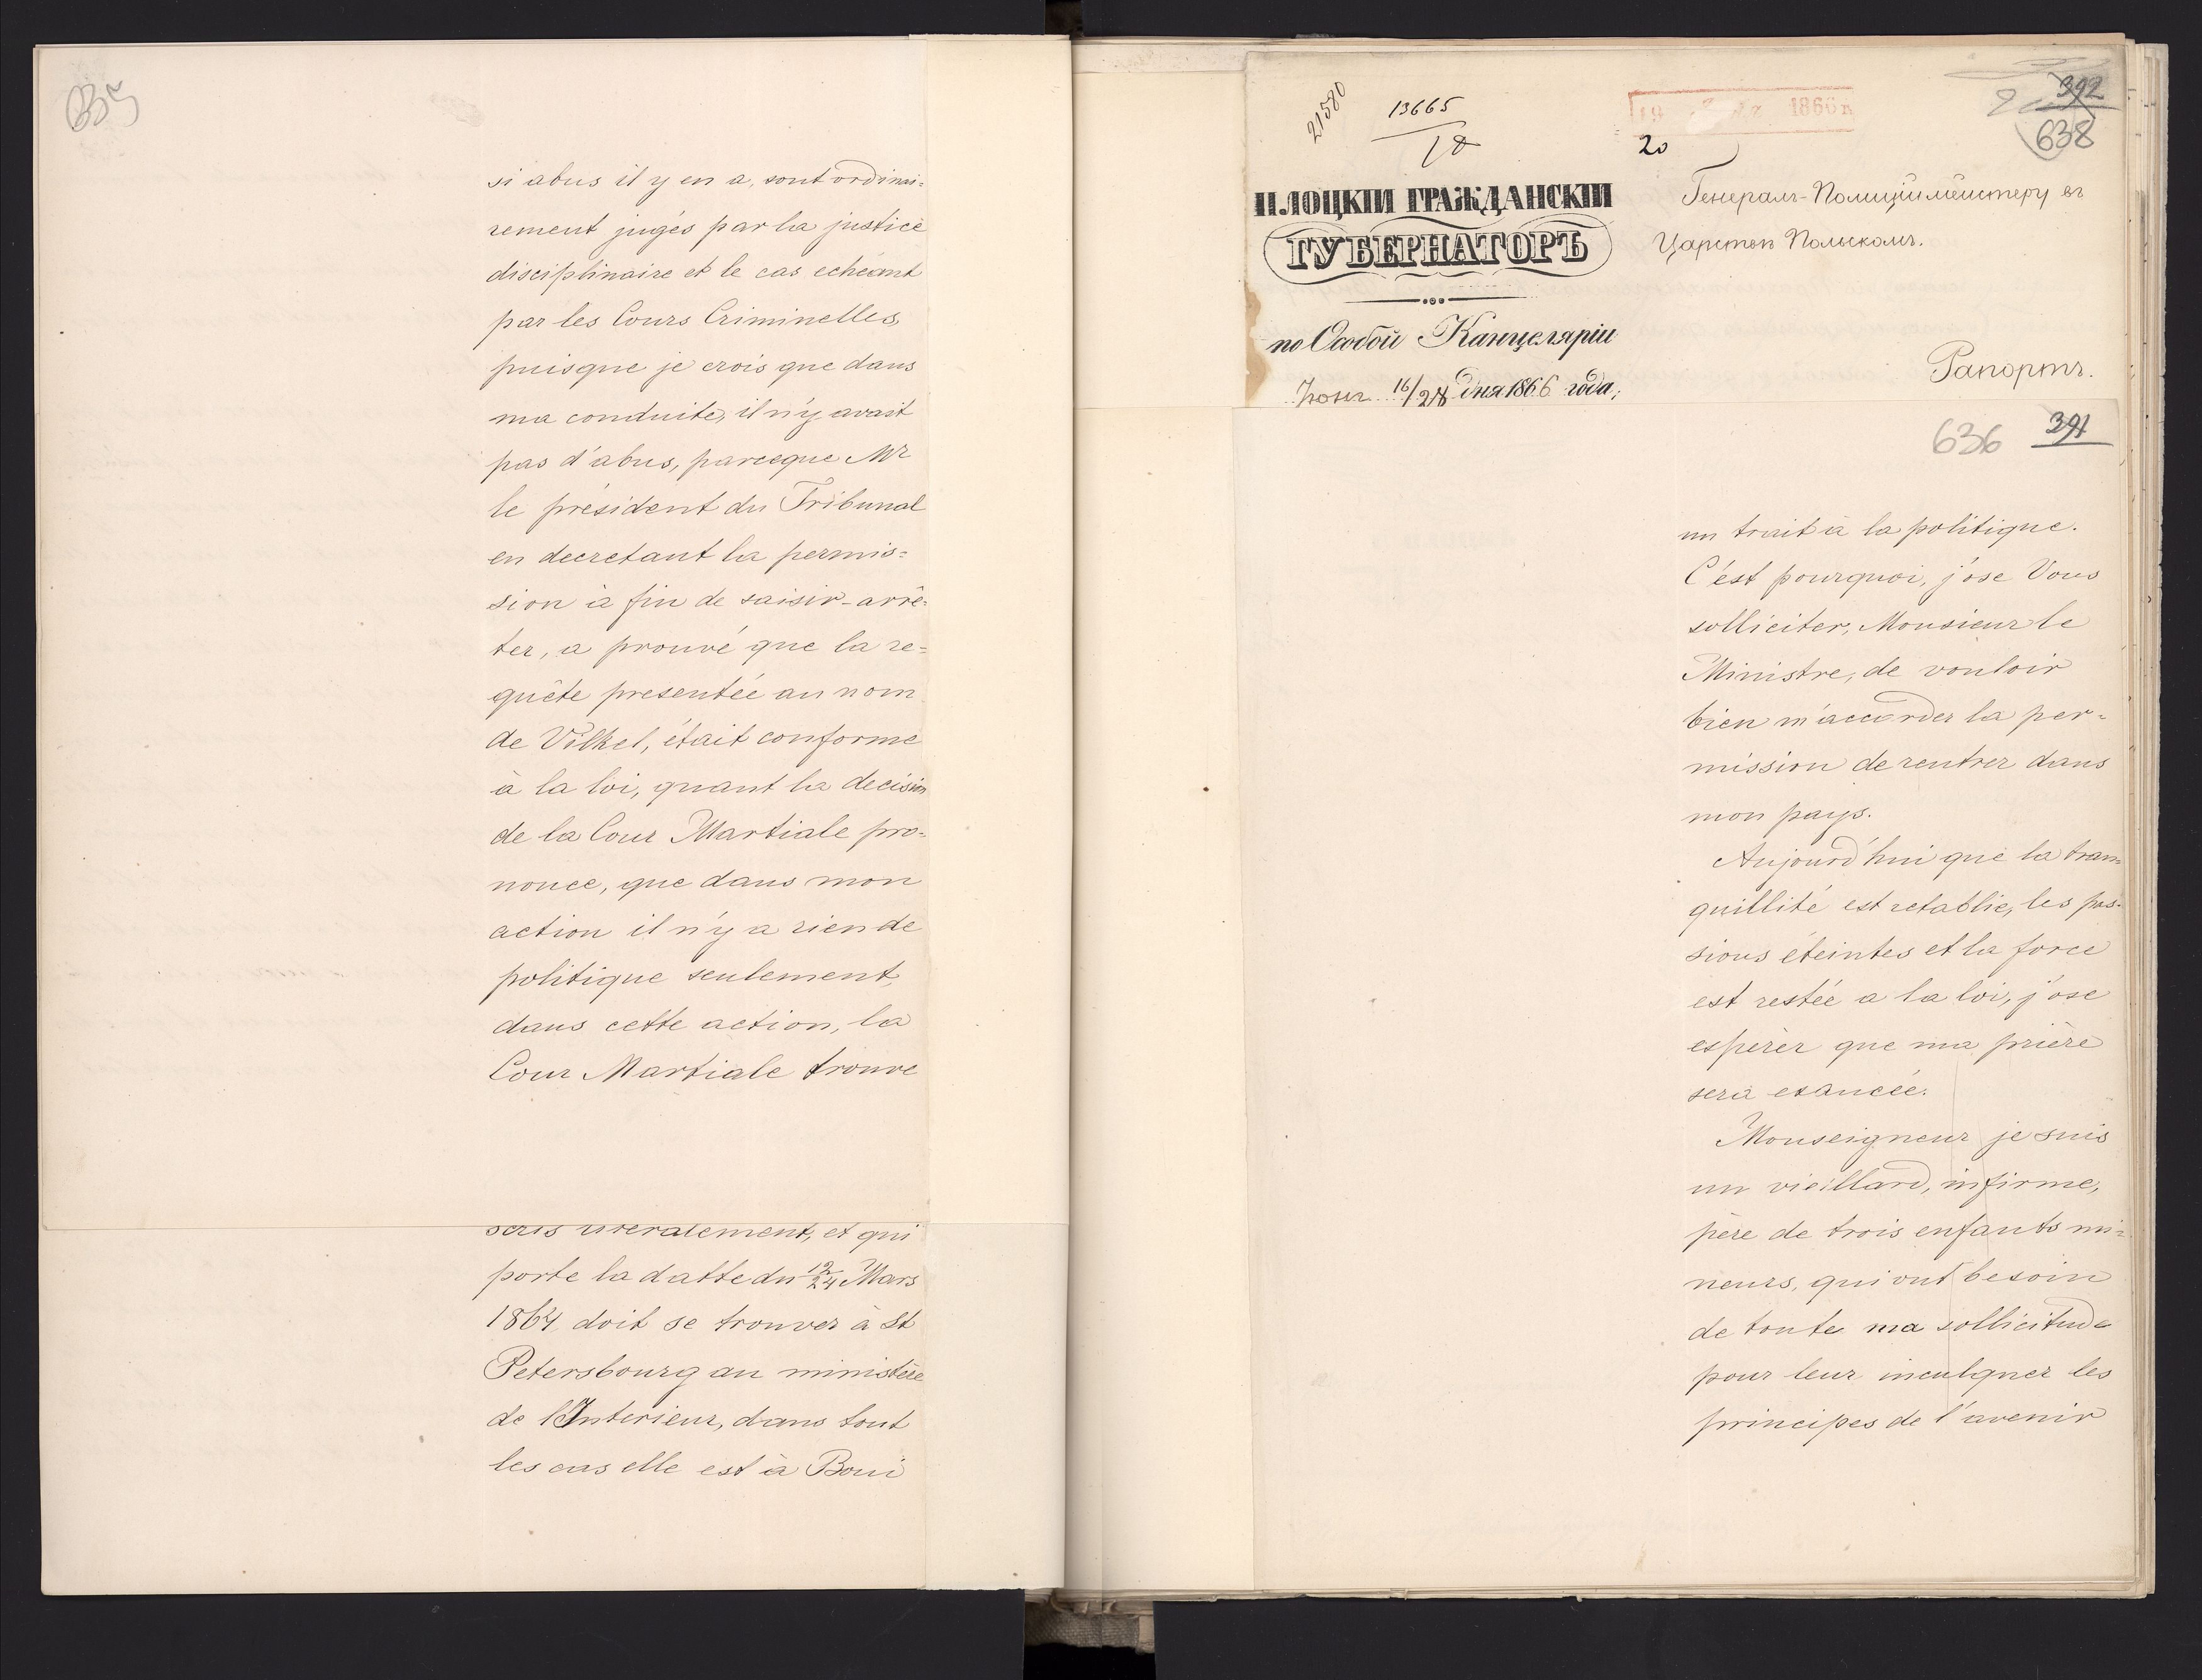 635
si abus il y en a, sont ordinai=
rement jugés par la justice
disciplinaire et le cas echéant
par les Cours Criminelles,
puisque je crois que dans
ma conduite, il n'y avait
pas d'abus, parceque Mr
le président du Tribunal
en decretant la permis=
sion à fin de saisir-arrê=
ter, a prouvé que la re=
quête presentée au nom
de Vilkel, était conforme
à la loi, quant la decision
de la Cour Martiale pro=
nonce, que dans mon
action il n'y a rien de
politique seulement,
dans cette action, la
Cour Martiale trouve
literalement, et qui
porte la datte du 12/24 Mars
1864 doit se trouver à St
Petersbourg au ministère
de l'Interieur, dans tout
les cas elle est à Boui
21580
13665
18
1866
20
392
638
ПЛОЦКІЙ ГРАЖДАНСКІЙ
ГУБЕРНАТОРЪ
по Особой Канцеляріи
Іюнь 16/28 дня 1866 года,
Генералъ-Полиціймейстеру въ
Царствѣ Польскомъ.
Рапортъ.
636
391
un trait à la politique.
C'est pourquoi, j'ose Vous
solliciter, Monsieur le
Ministre, de vouloir
bien m'accorder la per=
mission de rentrer dans
mon pays.
Aujourd'hui que la tran=
quillité est retablie, les pas=
sions éteintes et la force
est restée a la loi, j'ose
espérer que ma prière
sera exaucée.
Monseigneur je suis
un vieillard, infirme,
père de trois enfants mi=
neurs, qui ont besoin
de toute ma sollicitude
pour leur inculquer les
principes de l'avenir